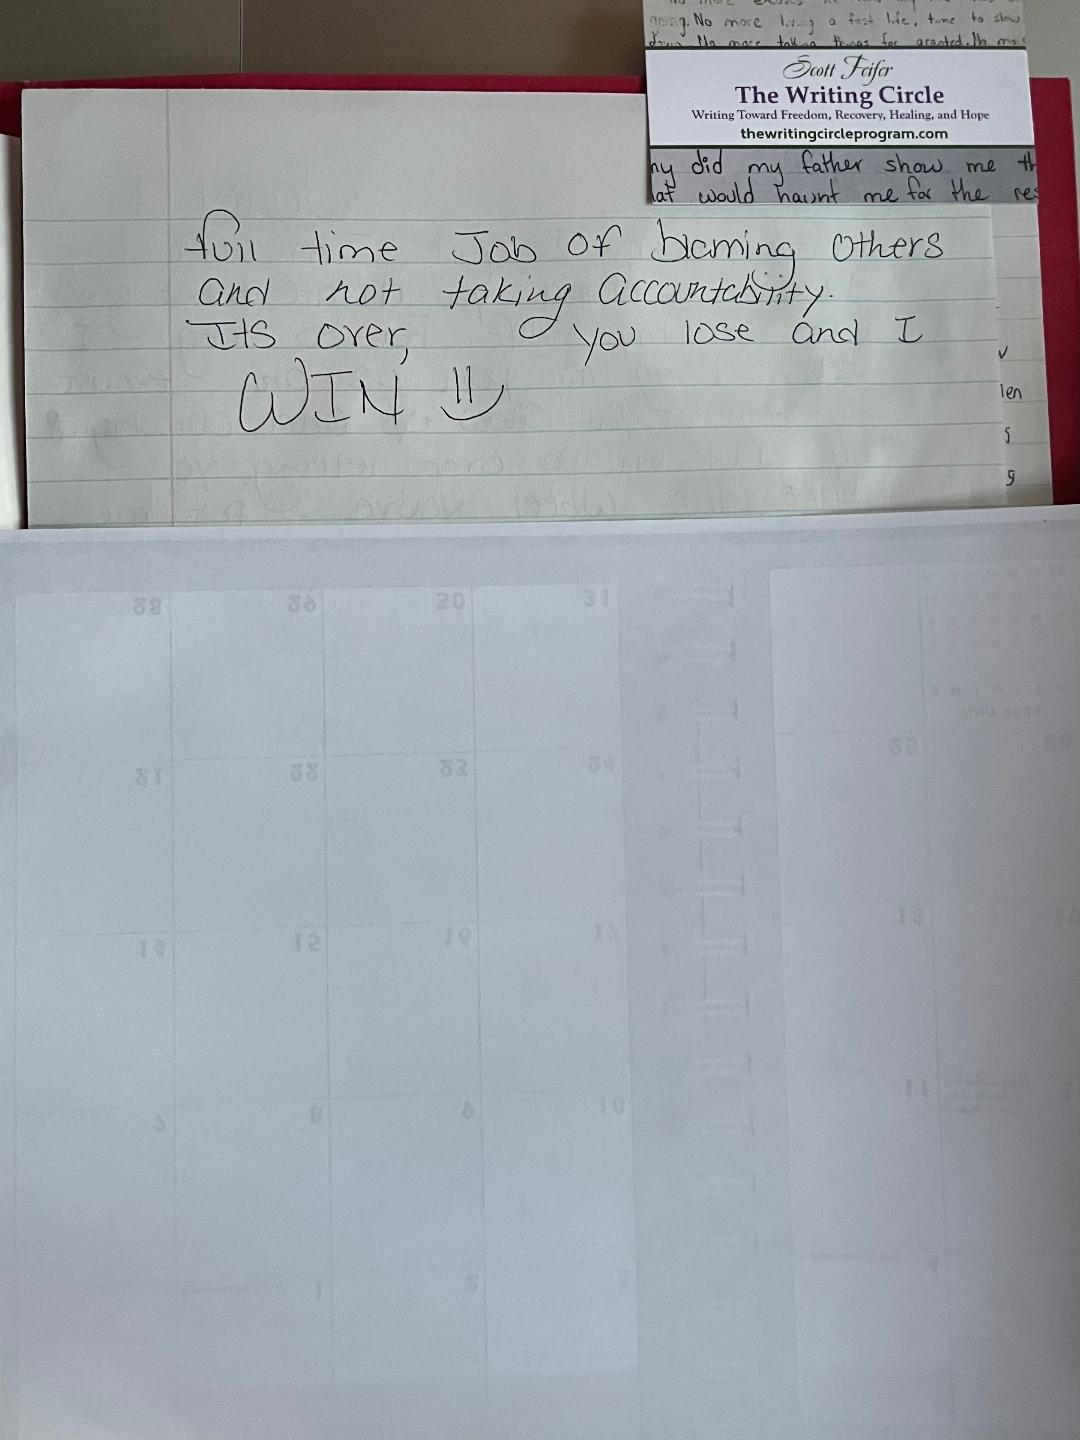 No more living a fast life, time to slow
down. No more taking things for granted. No mo
Scott Feifer
The Writing Circle
Writing Toward Freedom, Recovery, Healing, and Hope
thewritingcircleprogram.com
hy did my father show me th
hat would haunt me for the res
full time Job of blaming Others
and not taking Accountability.
Its over, you lose and I
WIN
v
len
s
g
28 29 30 31
21 22 23 24
25
14 15 16 17
18
7 8 9 10
11
1 2 3
4